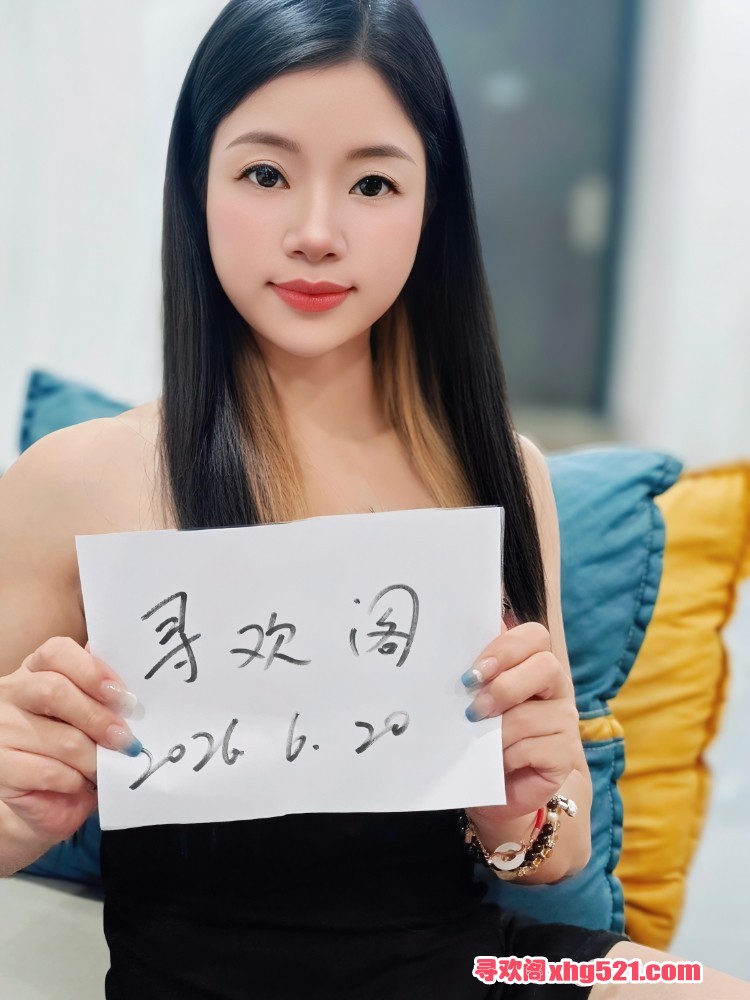 寻欢阁
2026.6.20
寻欢阁xhg521.com